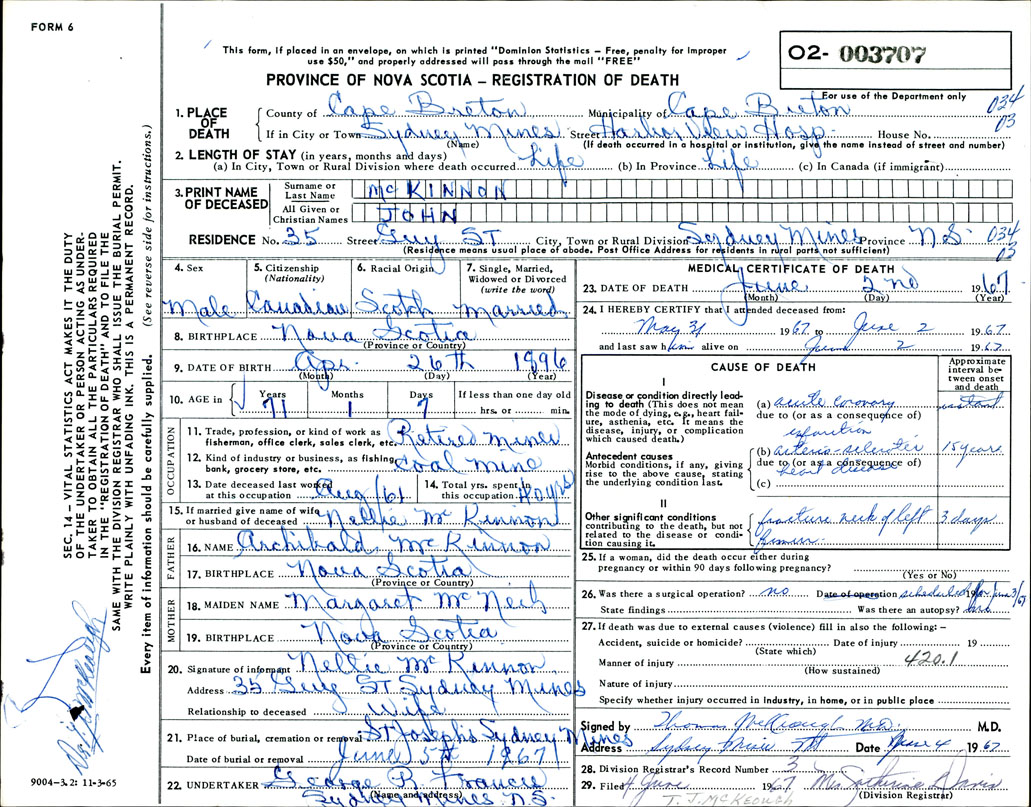 FORM 6
This form, if placed in an envelope, on which is printed "Dominion Statistics – Free, penalty for improper
use $50," and properly addressed will pass through the mail "FREE"
O2- 003707
PROVINCE OF NOVA SCOTIA – REGISTRATION OF DEATH
For use of the Department only
034
03
1. PLACE OF DEATH
County of Cape Breton Municipality of Cape Breton
If in City or Town Sydney Mines Street Harbor View Hosp. House No.
(Name) (If death occurred in a hospital or institution, give the name instead of street and number)
2. LENGTH OF STAY (in years, months and days)
(a) In City, Town or Rural Division where death occurred Life (b) In Province Life (c) In Canada (if immigrant)
3. PRINT NAME OF DECEASED
Surname or Last Name McKINNON
All Given or Christian Names JOHN
RESIDENCE No. 35 Street Guy ST City, Town or Rural Division Sydney Mines Province N.S. 034
03
(Residence means usual place of abode. Post Office Address for residents in rural parts not sufficient)
4. Sex
Male
5. Citizenship (Nationality)
Canadian
6. Racial Origin
Scotch
7. Single, Married, Widowed or Divorced (write the word)
Married
8. BIRTHPLACE Nova Scotia
(Province or Country)
9. DATE OF BIRTH Apr. 26th 1896
(Month) (Day) (Year)
10. AGE in Years Months Days If less than one day old
71 1 7 hrs. or min.
OCCUPATION
11. Trade, profession or kind of work as fisherman, office clerk, sales clerk, etc. Retired Miner
12. Kind of industry or business, as fishing, bank, grocery store, etc. Coal Mine
13. Date deceased last worked at this occupation Aug/61
14. Total yrs. spent in this occupation 40 yrs
15. If married give name of wife or husband of deceased Nellie McKinnon
FATHER
16. NAME Archibald McKinnon
17. BIRTHPLACE Nova Scotia
(Province or Country)
MOTHER
18. MAIDEN NAME Margaret McNeil
19. BIRTHPLACE Nova Scotia
(Province or Country)
20. Signature of informant Nellie McKinnon
Address 35 Guy ST Sydney Mines
Relationship to deceased Wife
21. Place of burial, cremation or removal St Josephs Sydney Mines
Date of burial or removal June 5th 1967
22. UNDERTAKER George B. Francis
(Name and address)
Sydney Mines N.S.
MEDICAL CERTIFICATE OF DEATH
23. DATE OF DEATH June 2nd 1967
(Month) (Day) (Year)
24. I HEREBY CERTIFY that I attended deceased from:
May 31 1967 to June 2 1967
and last saw him alive on June 2 1967
CAUSE OF DEATH
Approximate interval between onset and death
I
Disease or condition directly leading to death (This does not mean the mode of dying, e.g., heart failure, asthenia, etc. It means the disease, injury, or complication which caused death.)
(a) acute coronary instant
due to (or as a consequence of)
infarction
Antecedent causes
Morbid conditions, if any, giving rise to the above cause, stating the underlying condition last.
(b) arterio-sclerotic 15 years
due to (or as a consequence of)
heart disease
(c)
II
Other significant conditions contributing to the death, but not related to the disease or condition causing it.
fracture neck of left 3 days
femur
25. If a woman, did the death occur either during
pregnancy or within 90 days following pregnancy?
(Yes or No)
26. Was there a surgical operation? no Date of operation scheduled for June 3/67 19
State findings Was there an autopsy? no
27. If death was due to external causes (violence) fill in also the following: –
Accident, suicide or homicide? Date of injury 19
(State which)
Manner of injury 420.1
(How sustained)
Nature of injury
Specify whether injury occurred in industry, in home, or in public place
Signed by Thomas McKeough M.D. M.D.
Address Sydney Mines Date June 4 1967
28. Division Registrar's Record Number 3
29. Filed 4 June 1967 Mrs Davis
(Division Registrar)
T. J. McKEOUGH
SEC. 14 – VITAL STATISTICS ACT MAKES IT THE DUTY
OF THE UNDERTAKER OR PERSON ACTING AS UNDER-
TAKER TO OBTAIN ALL THE PARTICULARS REQUIRED
IN THE "REGISTRATION OF DEATH" AND TO FILE THE
SAME WITH THE DIVISION REGISTRAR WHO SHALL ISSUE THE BURIAL PERMIT.
WRITE PLAINLY WITH UNFADING INK. THIS IS A PERMANENT RECORD.
Every item of information should be carefully supplied. (See reverse side for instructions.)
9004-3.2: 11-3-65